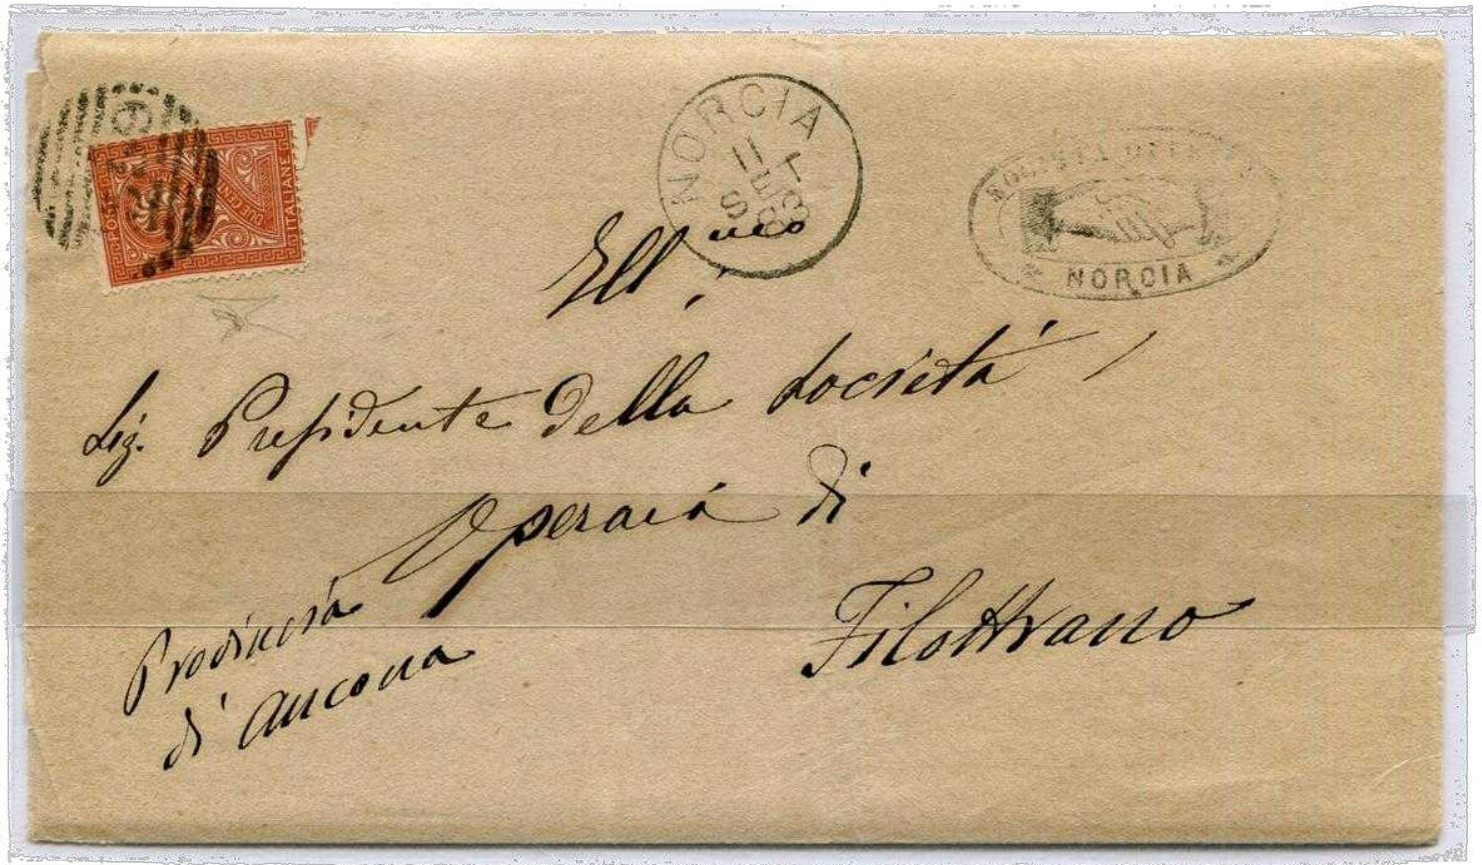 POSTE ITALIANE
DUE CENT
NORCIA
11
SET
83
NORCIA
Ill.mo
Sig. Presidente della Società
Operaia di
Filottrano
Provincia
di Ancona